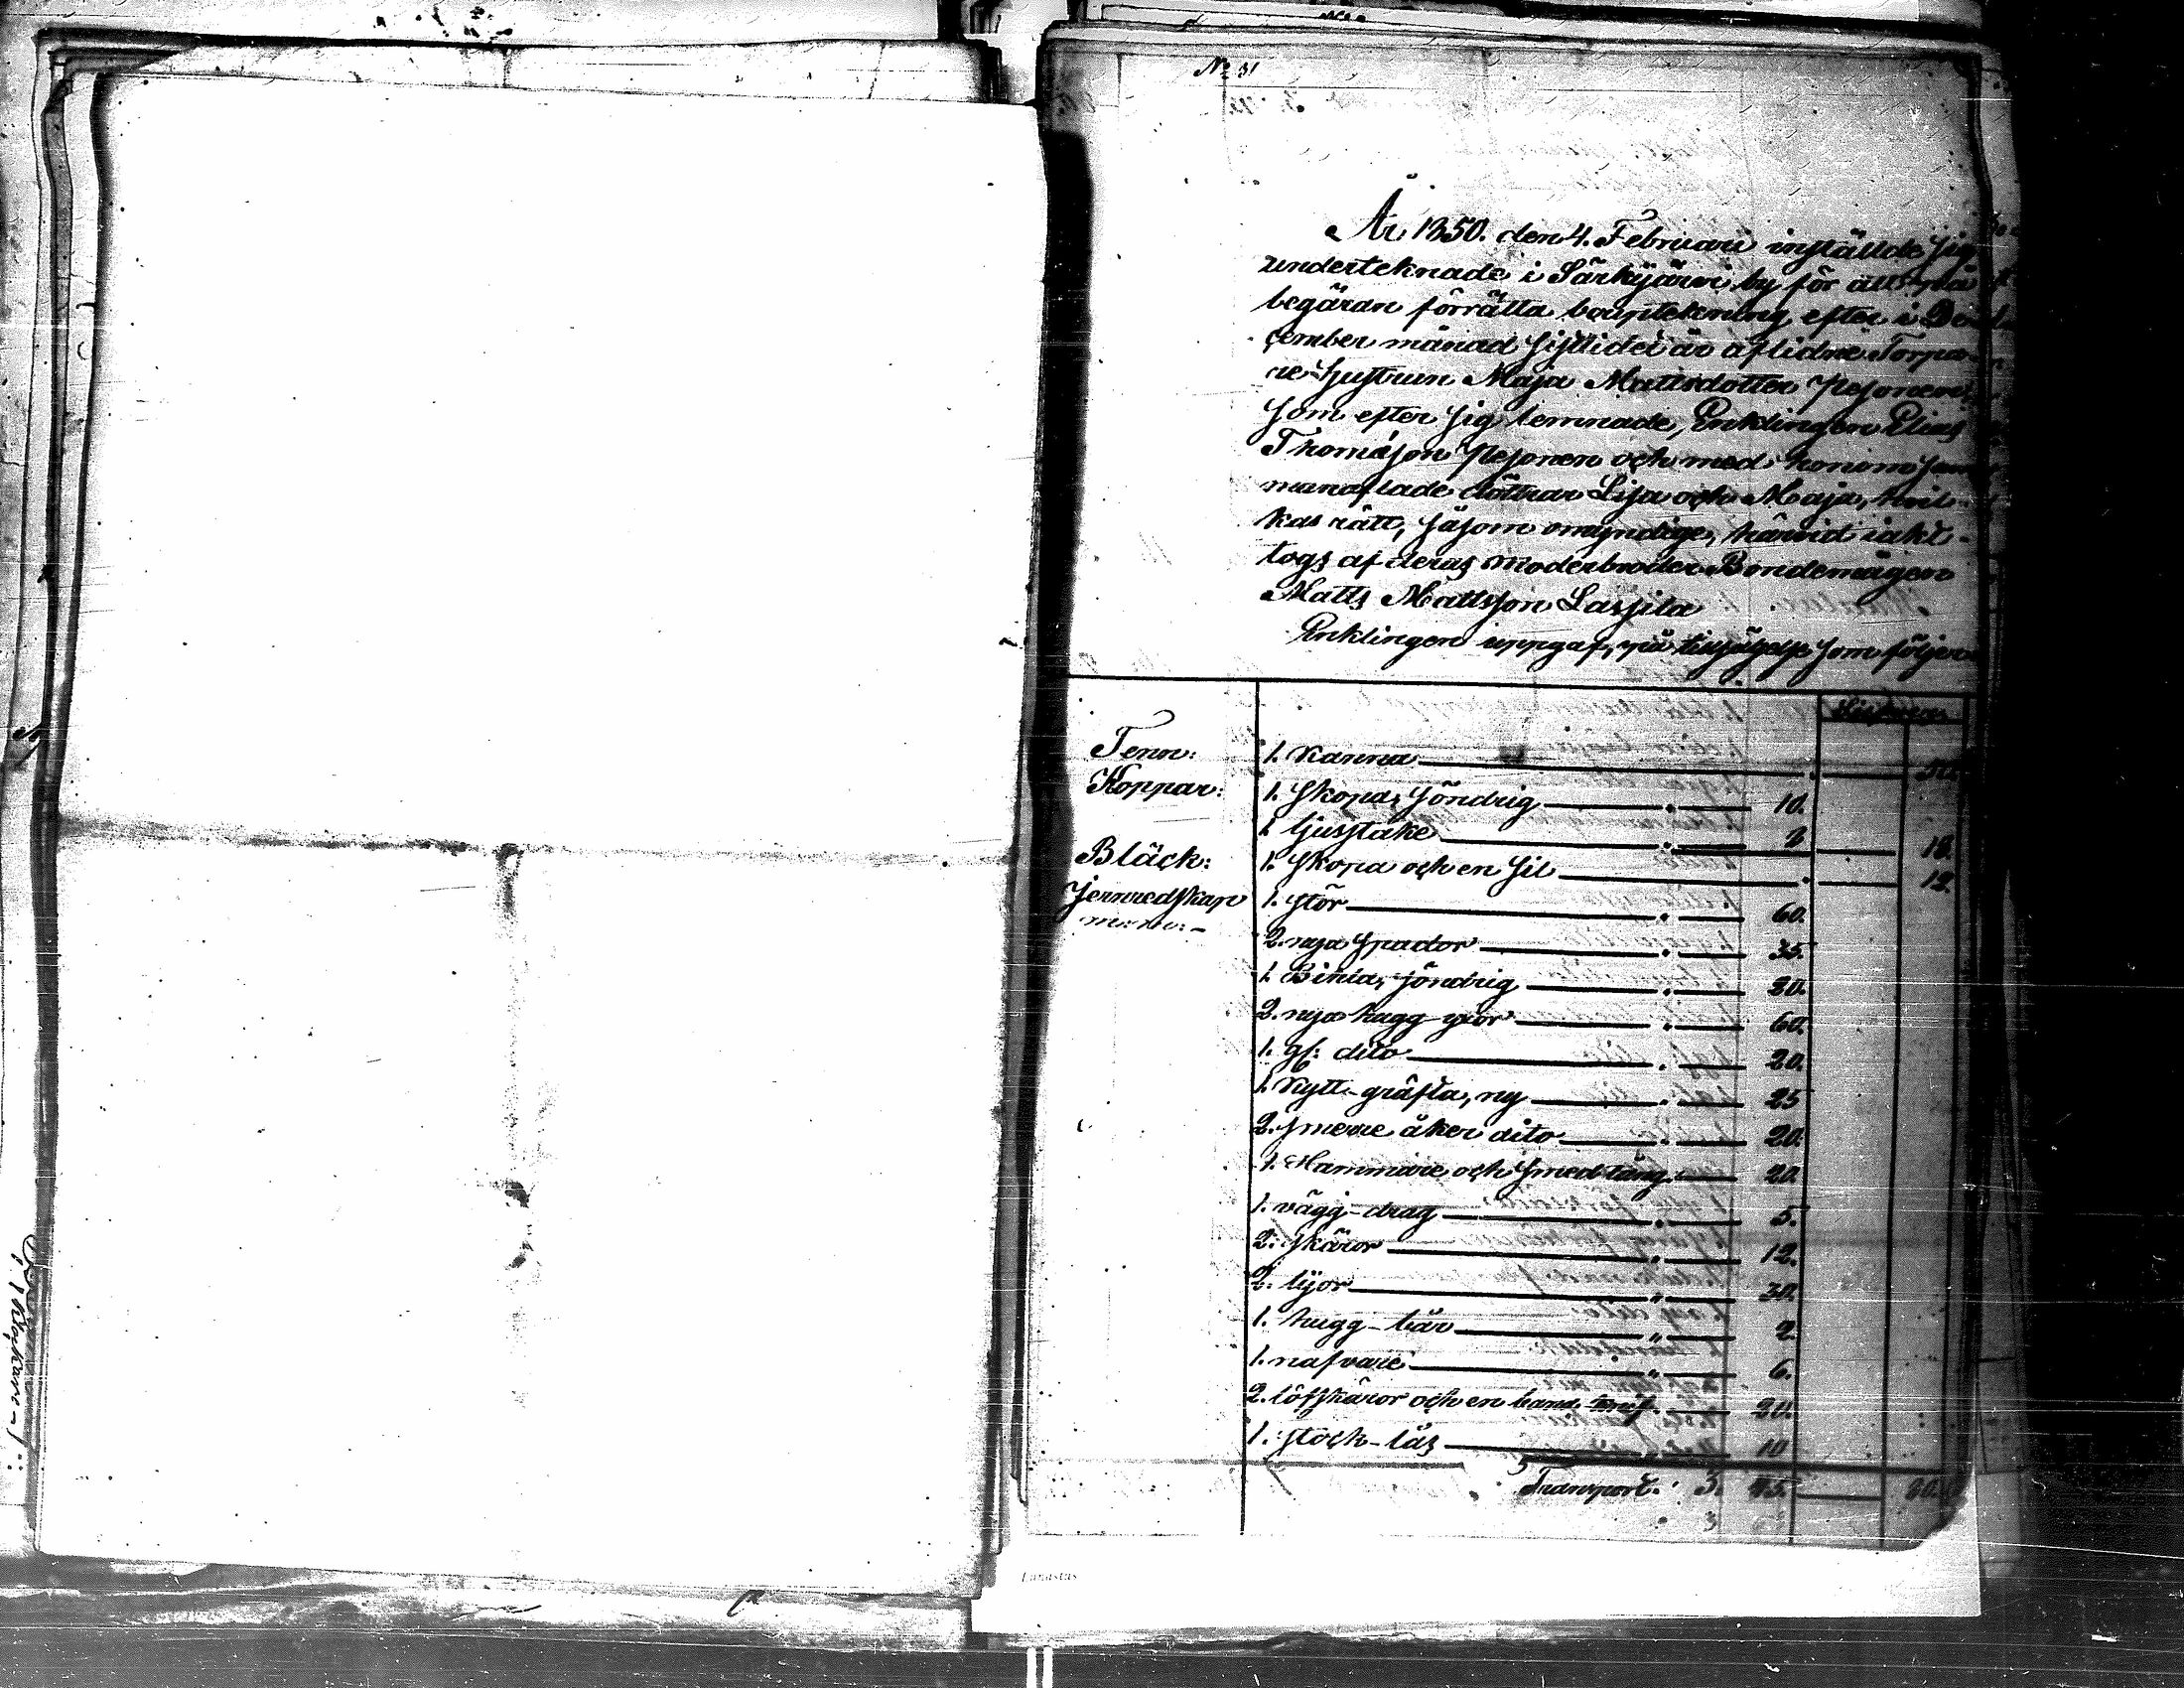 No 31
År 1850. den 4. Februari instälde sig
undertecknade i Särkijärvi by för att på
begäran förrätta bouptekning efter i De-
cember månad sistlidet år aflidne Torpa-
re-Hustrun Maja Mattsdotter Pesonen,
som efter sig lemnade, Enklingen Elias
Thomasson Pesonen och med honom sam-
manaflade döttrar Lisa och Maja, hvil-
kas rätt, såsom omyndige, härvid iakt-
togs af deras Moderbroder Bondemågen
Matts Mattsson Lassila
Enklingen uppgaf, på tillfrågelse som följer
Tenn: 1. Kanna
Koppar: 1. skopa, söndrig 10.
1. ljusstake 8 18.
Bläck: 1. skopa och en sil 12.
Jernredskap 1. stör 60.
2. nya spador 35.
1. Bihla, söndrig 30.
2. nya hugg-yxor 60.
1. gl: dito 20.
1. kytt-gräfta, ny 25
2. smerre åker dito 20.
1. Hammare och smedtång 20.
1. vägg-drag 5.
2. skäror 12.
2. lijor 30.
1. hugg-bär 2
1. nafvare 6.
2. löfskäror och en band-knif 20.
1. stock-lås 10
Transport: 3. 45. 80.
Lunastus